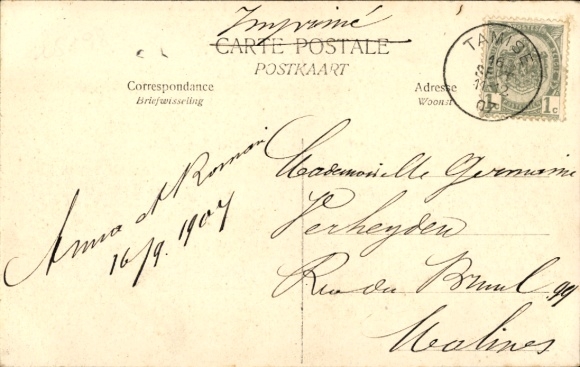 Imprimé
CARTE POSTALE
POSTKAART
Correspondance
Briefwisseling
Adresse
Woonst
TAMISE
16
SEPT
11-12
07
1 1c
Anna
16/9. 1907
Mademoiselle Germaine
Verheyden
Rue du Bruul 99
Malines